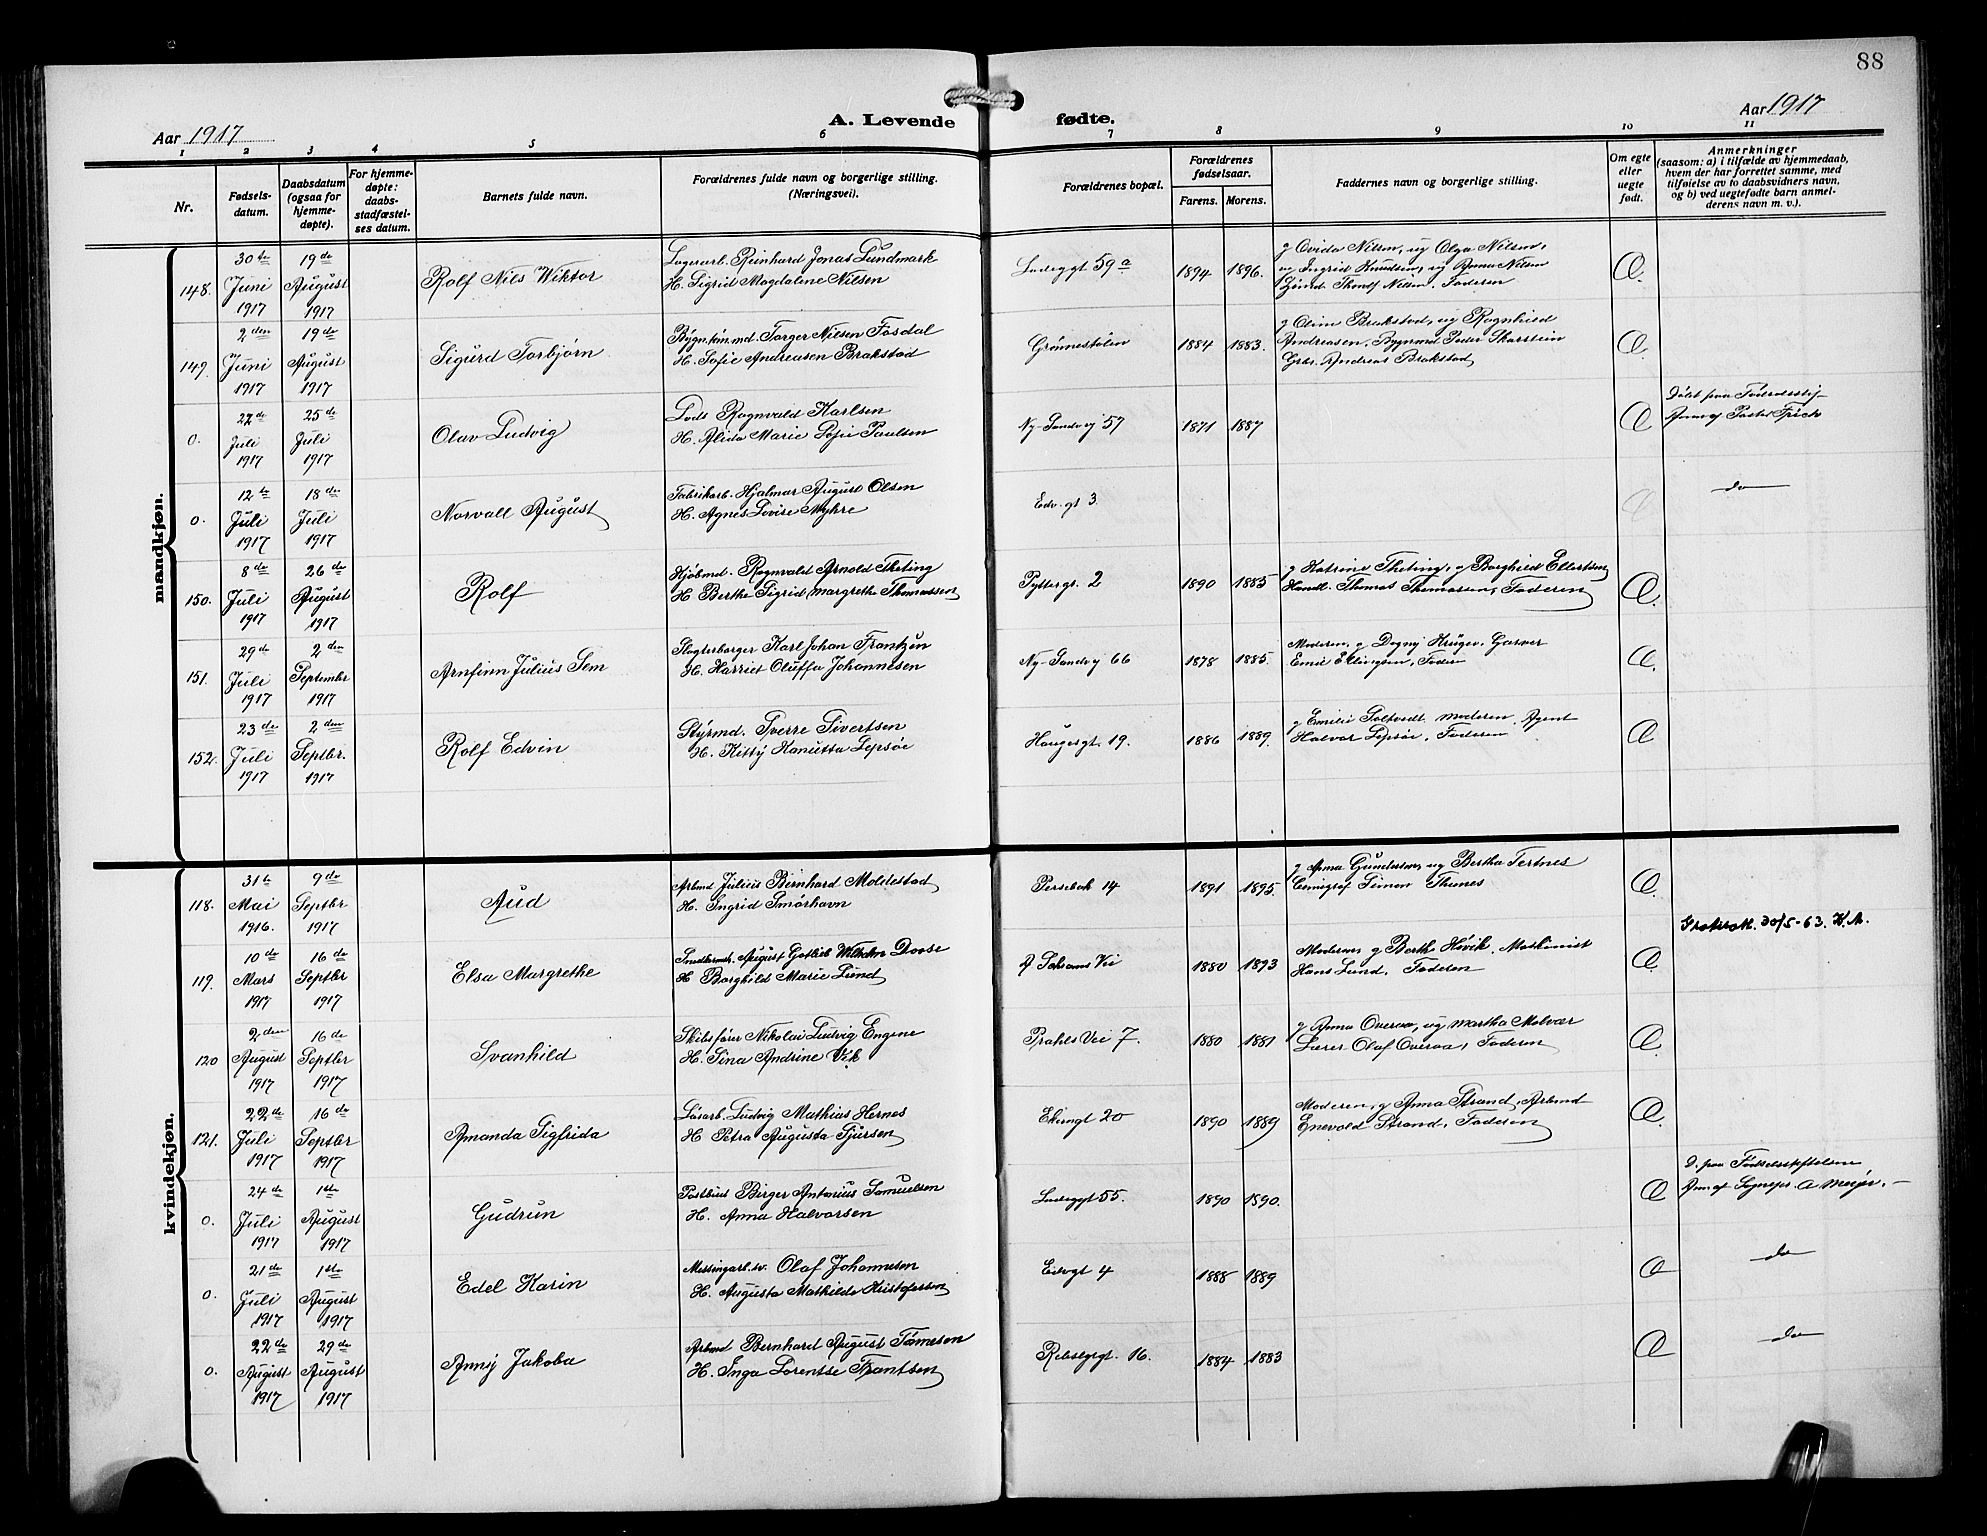 88
Aar 1917
A. Levende fødte.
Aar 1917
1 2 3 4 5 6 7 8 9 10 11
Nr.
Fødsels-
datum.
Daabsdatum
(ogsaa for
hjemme-
døpte).
For hjemme-
døpte:
daabs-
stadfæstel-
ses datum.
Barnets fulde navn.
Forældrenes fulde navn og borgerlige stilling.
(Næringsvei).
Forældrenes bopæl.
Forældrenes
fødselsaar.
Farens. Morens.
Faddernes navn og borgerlige stilling.
Om egte
eller
uegte
født.
Anmerkninger
(saasom: a) i tilfælde av hjemmedaab,
hvem der har forrettet samme, med
tilføielse av to daabsvidners navn,
og b) ved uegtefødte barn anmel-
derens navn m. v.).
mandkjøn.
148. 30te Juni 1917
19de August 1917
Rolf Nils Wiktor
Lagerarb. Reinhard Jonas Lundmark
H. Sigrid Magdalene Nilsen
59a 1894 1896.
g Ovida Nilsen, ug Olga Nilsen,
ug Ingrid Knudsen, ug Anna Nilsen
Nilsen. Faderen
Æ.
149. 2den Juni 1917
19de August 1917
Sigurd Torbjørn
Torger Nilsen Fosdal
H. Sofie Andreasen Brakstad
Grønnestølen 1884 1883.
g Oline Brakstad, ug Ragnhild
Andreasen, Peder Skarstein
Andreas Brakstad
Æ.
0. 22de Juli 1917
25de Juli 1917
Olav Ludvig
Lods Ragnvald Karlsen
H. Alida Marie Sofie Paulsen
Ny-Sandvig 57 1871 1887
Æ
Døbt paa Fødselsstif.
Ann af Pastor Frich
0. 12te Juli 1917
18de Juli 1917
Norvall August
Fabrikarb. Hjalmar August Olsen
H. Agnes Lovise Myhre
Edv. gt 3.
do
150. 8de Juli 1917
26de August 1917
Rolf
Ragnvald Arnold Theting
H Berthe Sigrid Margrethe Thomassen
Pyttergt. 2 1890 1885
g Katrine Theting, g Borghild Ellertsen
Handl. Thomas Thomassen, Faderen
Æ.
151. 29de Juli 1917
2den September 1917
Arnfinn Julius Sem
Karl Johan Frantzen
H. Harriet Oluffa Johannesen
Ny-Sandvig 66 1878 1885.
Moderen, g Dagny Krüger, Garver
Emil Ellingsen, Fader
Æ.
152. 23de Juli 1917
2den Septbr. 1917
Rolf Edvin
Styrmd. Sverre Sivertsen
H. Kitty Lepsøe
Haugesgt. 19. 1886 1889.
g Emilie Moderen, Agent
Halvor Lepsøe, Faderen
Æ
kvindekjøn.
118. 31te Mai 1916.
9de Septbr 1917
Aud
Arbmd Julius Bernhard Moldestad
H. Ingrid Smørhavn
Persebak 14 1891 1895.
g Anna Gundersen, ug Bertha Tertnes
Simon Thunes
Æ.
30/5-63. K.A.
119. 10de Mars 1917
16de Septbr 1917
Elsa Margrethe
August Gotlieb Wilhelm Doose
H Borghild Marie Lund
Vei 1880 1893
Moderen, g Berth Høvik, Maskinist
Hans Lund, Faderen
Æ.
120 2den August 1917
16de Septbr 1917
Svanhild
Skibsfører Nikolai Ludvig Engene
H. Sina Andrine Vik
Prahls Vei 7. 1880 1881
g Anna Overaa, ug Martha Molvær
Lærer Olaf Overaa, Faderen
Æ.
121. 22de Juli 1917
16de Septbr 1917
Amanda Sigfrida
Løsarb. Ludvig Mathias Hernes
H. Petra Augusta Sjursen
20 1890 1889
Moderen, g Anna Strand, Arbmd
Enevold Strand, Faderen
Æ.
0. 24de Juli 1917
1ste August 1917
Gudrun
Postbud Birger Antonius Samuelsen
H. Anna Halvorsen
55. 1890 1890.
Æ
D. paa Fødselsstiftelsen
Ann af Sognepr. A Meyer.
0. 21de Juli 1917
1ste August 1917
Edel Karin
Olaf Johannesen
H. Augusta Mathilde Kristofersen
Edvgt 4 1888 1889
Æ
do
0. 22de August 1917
29de August 1917
Anny Jakoba
Arbmd Bernhard August Tømesen
H. Inga Lorentse Frantsen
16. 1884 1883
Æ
do